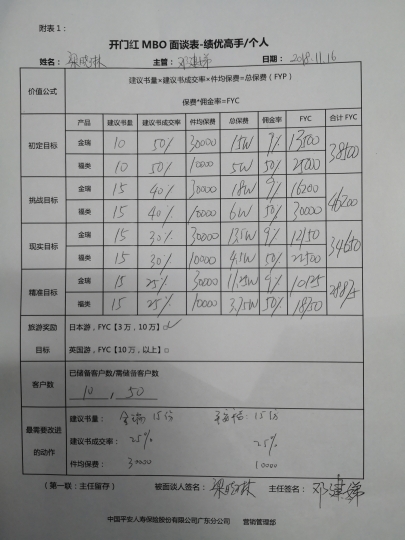 附表1：
开门红MBO面谈表-绩优高手/个人
姓名： 梁晓琳 主管： 日期： 2018.11.16
价值公式 建议书量×建议书成交率×件均保费=总保费（FYP）
保费*佣金率=FYC
产品 建议书量 建议书成交率 件均保费 总保费 佣金率 FYC 合计FYC
初定目标 金瑞 10 50% 30000 15W 9% 13500 38500
福类 10 50% 10000 5W 50% 25000
挑战目标 金瑞 15 40% 30000 18W 9% 16200 46200
福类 15 40% 10000 6W 50% 30000
现实目标 金瑞 15 30% 30000 13.5W 9% 12150 34650
福类 15 30% 10000 4.5W 50% 22500
精准目标 金瑞 15 25% 30000 11.25W 9% 10125 28875
福类 15 25% 10000 3.75W 50% 18750
旅游奖励 日本游，FYC【3万，10万】□✓
目标 英国游，FYC【10万，以上】□
客户数 已储备客户数/需储备客户数
10 , 50
最需要改进 建议书量： 金瑞 15份 15份
的动作 建议书成交率： 25% 25%
件均保费： 30000 10000
（第一联：主任留存） 被面谈人签名： 梁晓琳 主任签名：
中国平安人寿保险股份有限公司广东分公司 营销管理部